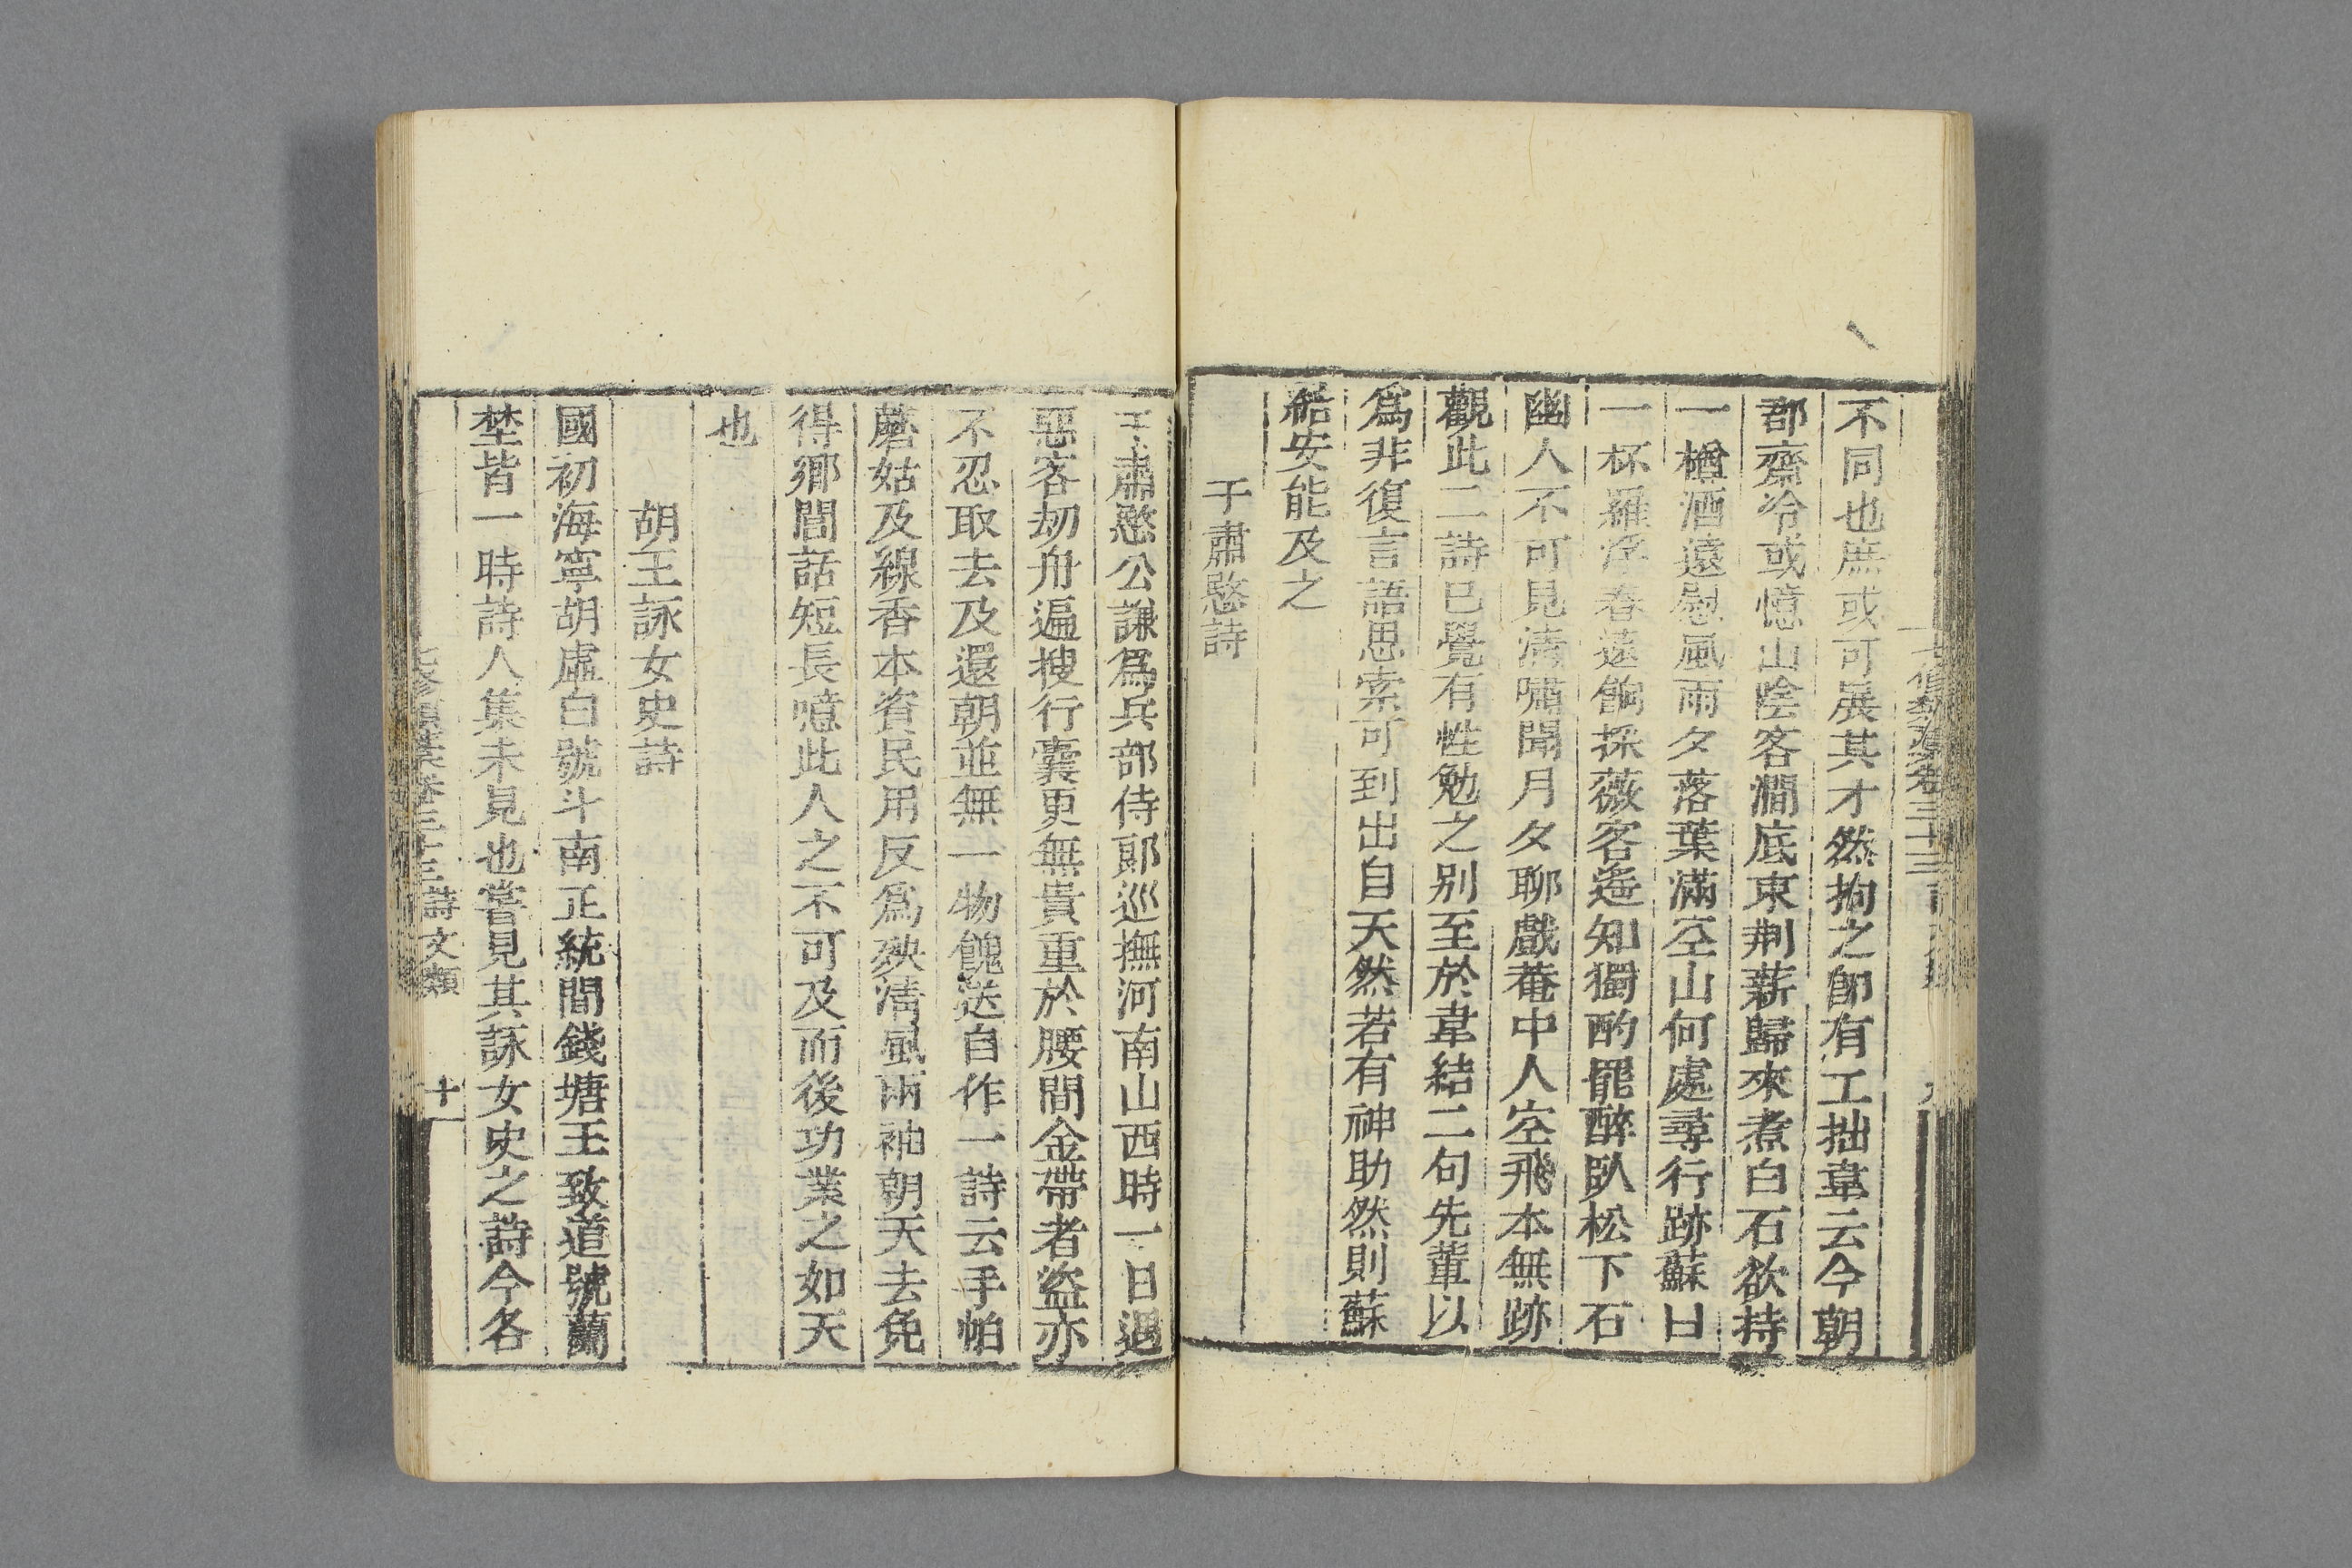 七修類藁卷三十三 九
不同也庶或可展其才然拘之即有工拙韋云今朝
郡齋冷或憶山陰客澗底束荆薪歸來煮白石欲持
一樽酒遠慰風雨夕落葉滿空山何處尋行跡蘇曰
一杯羅浮春遠餉採薇客遙知獨酌罷醉臥松下石
幽人不可見清嘯聞月夕聊戲菴中人空飛本無跡
觀此二詩已覺有性勉之别至於韋結二句先輩以
爲非復言語思索可到出自天然若有神助然則蘇
結安能及之
于肅愍詩
于肅愍公謙爲兵部侍郎巡撫河南山西時一日遇
惡客刼舟遍搜行囊更無貴重於腰間金帶者盜亦
不忍取去及還朝並無一物餽送自作一詩云手帕
蘑姑及線香本資民用反爲殃清風兩袖朝天去免
得鄉閭話短長噫此人之不可及而後功業之如天
也
胡王詠女史詩
國初海寧胡虛白號斗南正統間錢塘王致道號蘭
埜皆一時詩人集未見也嘗見其詠女史之詩今各
七修類藁卷三十三 詩文類 十